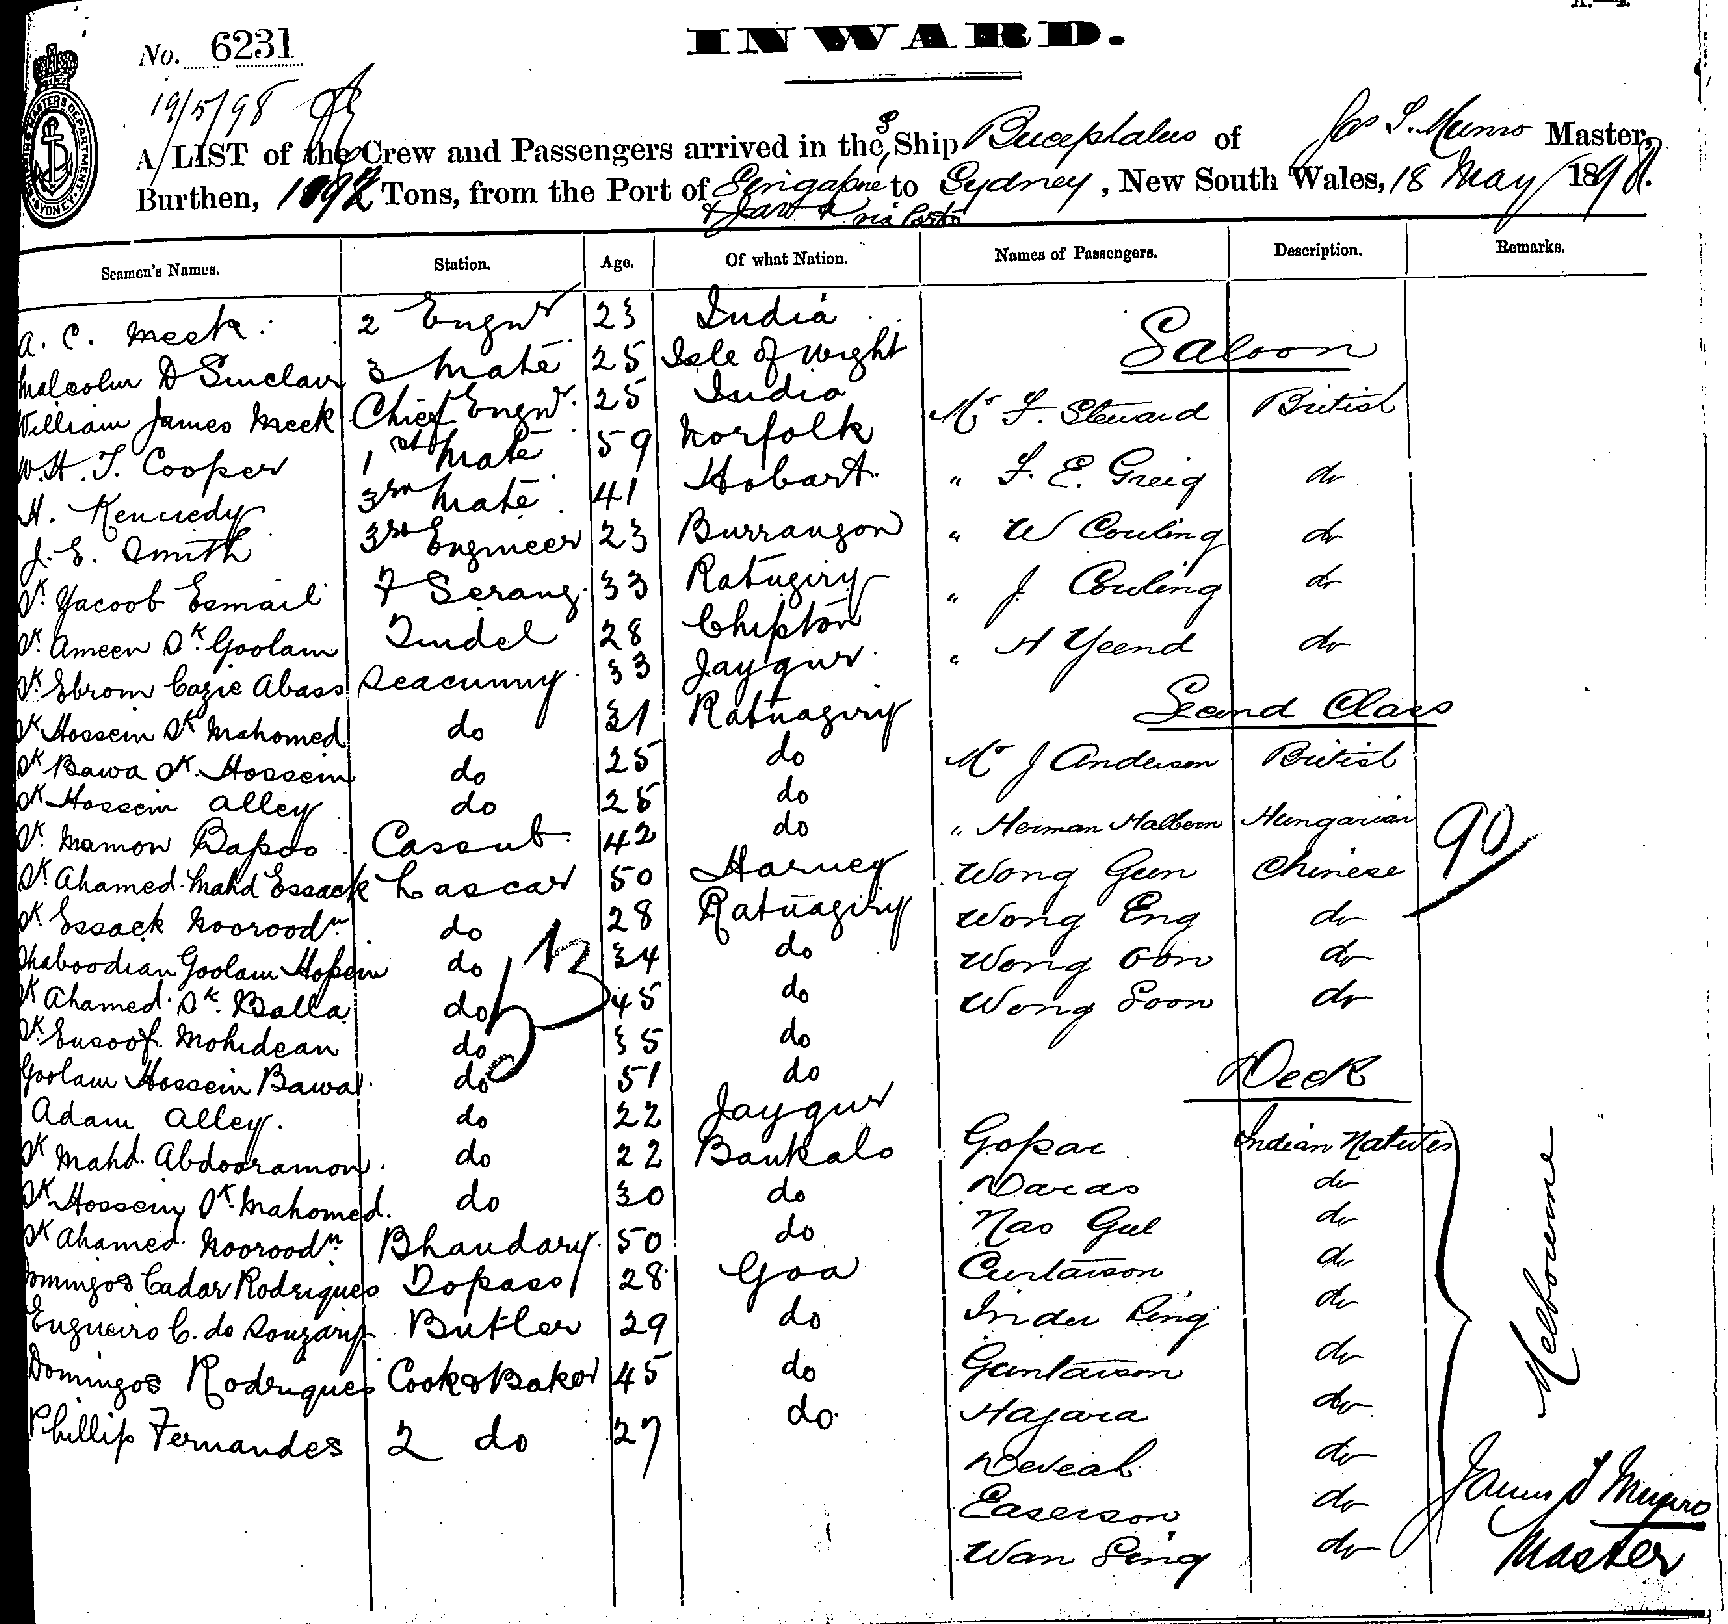 A.—4.
No. 6231
INWARD.
19/5/98
A LIST of the Crew and Passengers arrived in the S, Ship Bucephalus of Jas S. Munro Master,
Burthen, 1892 Tons, from the Port of Singapore to Sydney, New South Wales, 18 May 1898.
& Java via Ports
Seamen's Names. Station. Age. Of what Nation. Names of Passengers. Description. Remarks.
A. C. Meek 2 Engnr 23 India
Saloon
Malcolm D Sinclair 3 Mate 25 Isle of Wight
William James Meek Chief Engnr. 25 India Mr F. Steward British
W. H. T. Cooper 1st Mate 59 Norfolk
H. Kennedy 3rd Mate 41 Hobart " F. E. Greig do
J. E. Smith 3rd Engineer 23 Burrangon " W Couling do
Sk. Yacoob Esmail 7 Serang 33 Ratnagiry " J. Couling do
Sk. Ameen Sk. Goolam Tindel 28 Chipton " A Yeend do
Sk. Ebrom Cazie Abass Seacunny 33 Jaygur
Second Class
Sk Hossein Sk Mahomed do 31 Ratnagiry
Sk Bawa Sk. Hossein do 25 do Mr J Anderson British
Sk Hossein Alley do 25 do
Sk. Mamon Bapoo Cassub 42 do " Herman Halbern Hungarian
90
Sk. Ahamed Mahd Essack Lascar 50 Harney Wong Gun Chinese
Sk Essack Noorood n 28 Ratnagiry Wong Eng do
do
Shaboodian Goolam Hossein do 34 do Wong Oon do
Sk Ahamed Sk. Balla do 45 do Wong Soon do
Sk. Eusoof Mohidean do 35 do
Goolam Hossein Bawa do 51 do
Deck
Adam Alley. do 22 Jaygur
Sk Mahd. Abdooramon do 22 Bankalo Gopac Indian Natives
Sk Hossein Sk. Mahomed. do 30 do Daras do
Sk Ahamed Noorood n Bhandary 50 do Nao Gul do
Domingos Cadar Rodrigues Topass 28 Goa Curtaison do
C. de Souzary Butler 29 do Inder Sing do
Domingos Rodrigues Cook & Baker 45 do Guntaison do
Phillip Fernandes 2 do 27 do. Hajara do
Deveah do
Easerson do
Wan Sing do
Melbourne
James S Munro
Master